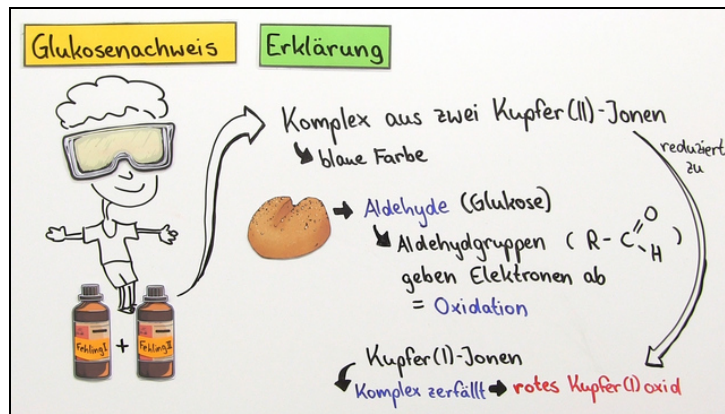 Glukosenachweis
Erklärung
Komplex aus zwei Kupfer(II)-Jonen
blaue Farbe
reduziert
zu
Aldehyde (Glukose)
Aldehydgruppen ( R-C O H )
geben Elektronen ab
= Oxidation
Fehling I + Fehling II
Kupfer(I)-Jonen
Komplex zerfällt → rotes Kupfer(I)oxid